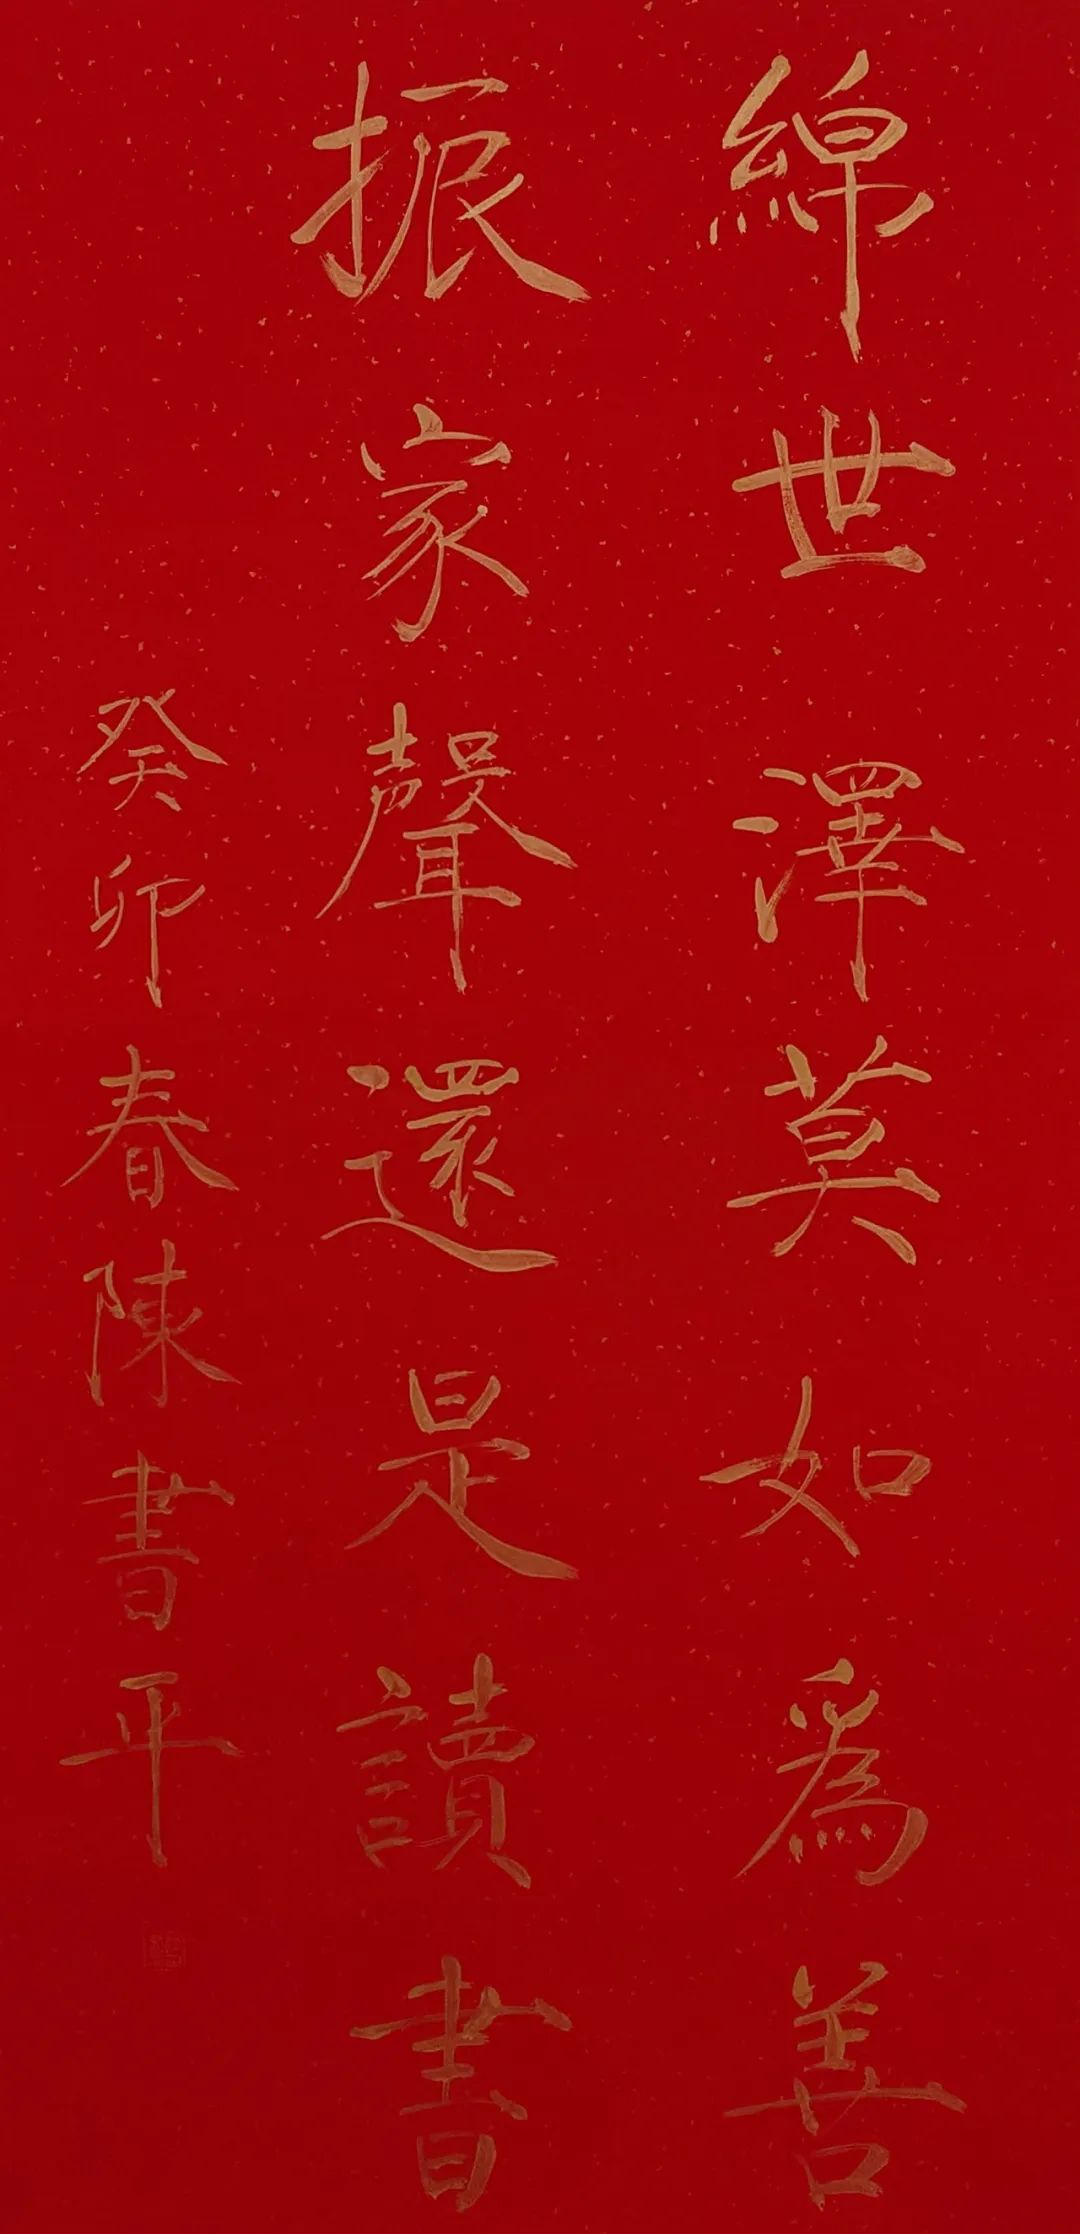 綿世澤莫如爲善
振家聲還是讀書
癸卯春陳書平